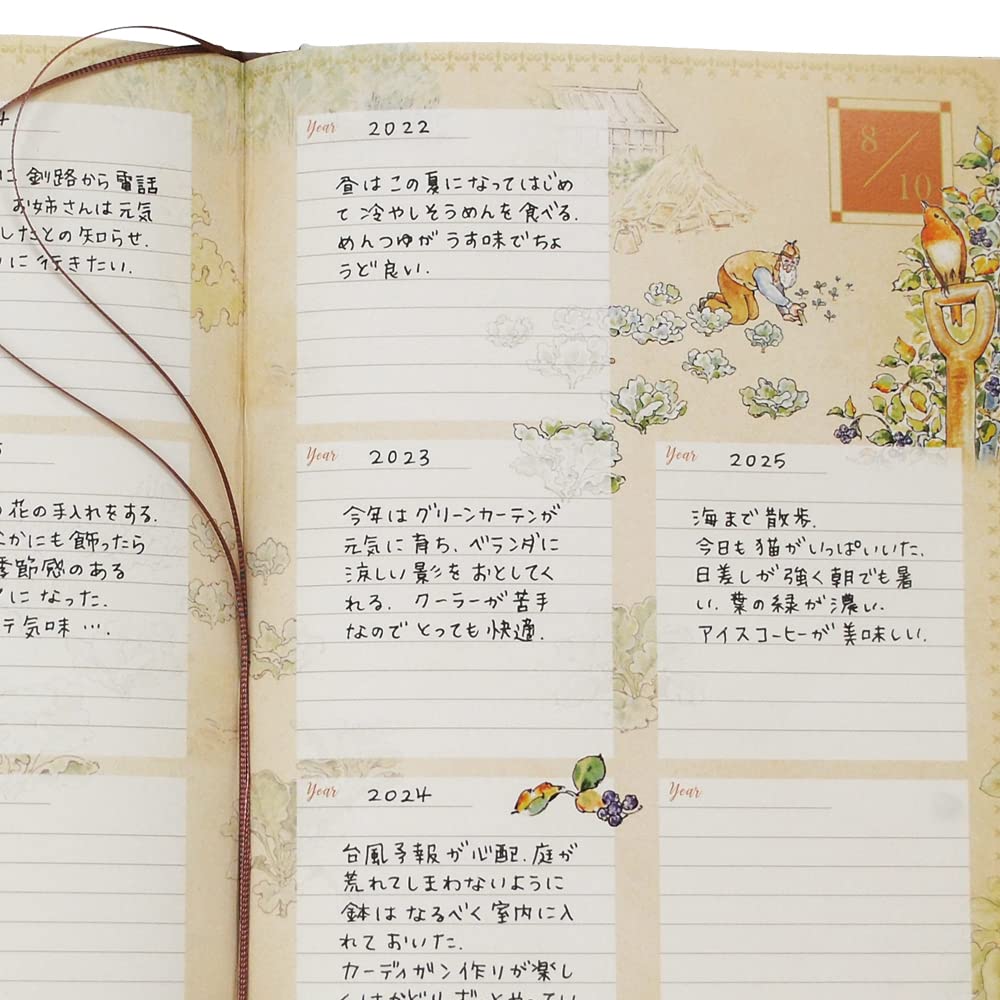 釧路から電話
お姉さんは元気
したとの知らせ.
に行きたい.
花の手入れをする.
かにも飾ったら
季節感のある
になった.
気味….
8/10
Year 2022
昼はこの夏になってはじめ
て冷やしそうめんを食べる.
めんつゆがうす味でちょ
うど良い.
Year 2023
今年はグリーンカーテンが
元気に育ち、ベランダに
涼しい影をおとしてく
れる. クーラーが苦手
なのでとっても快適.
Year 2024
台風予報が心配.庭が
荒れてしまわないように
鉢はなるべく室内に入
れておいた.
カーディガン作りが楽し
Year 2025
海まで散歩.
今日も猫がいっぱいいた.
日差しが強く朝でも暑
い.葉の緑が濃い.
アイスコーヒーが美味しい.
Year